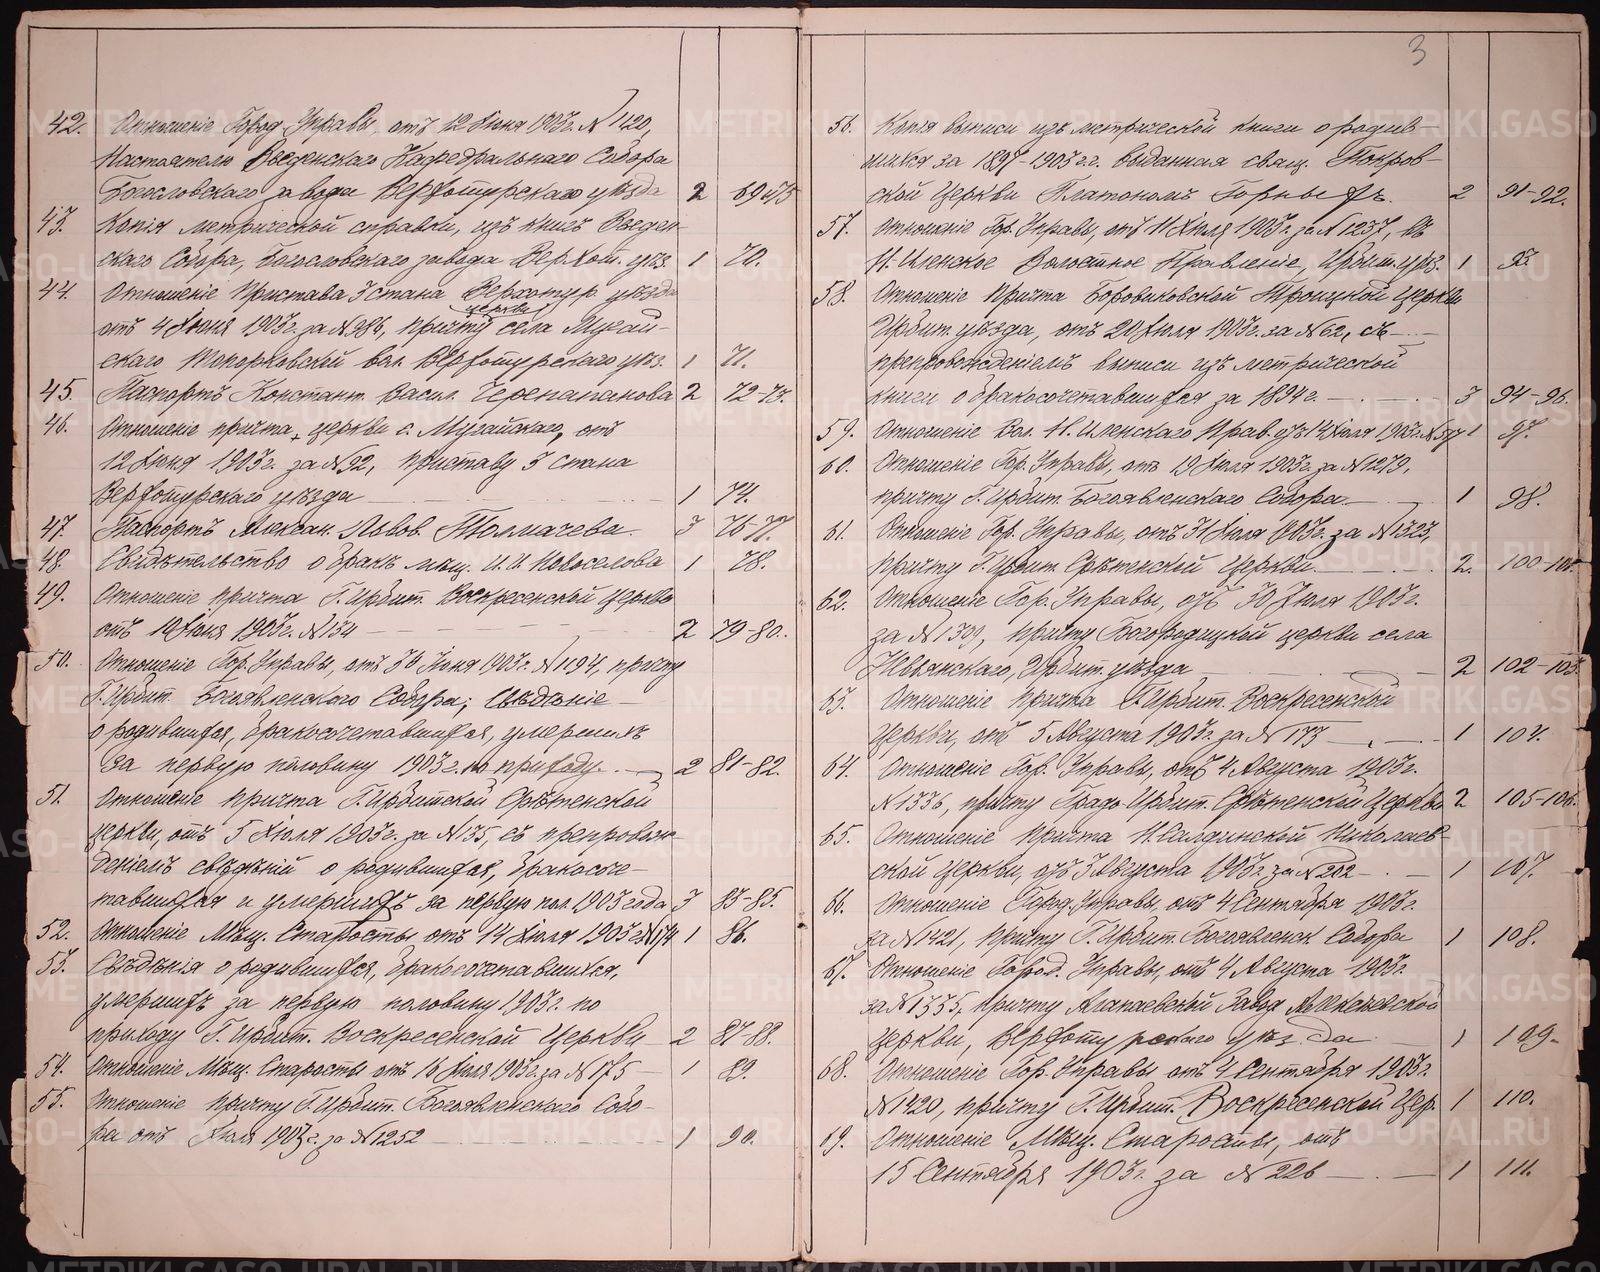 42. Отношеніе Город. Управы, отъ 12 Іюня 1903 г. № 1120,
Настоятелю Введенскаго Кафедральнаго Собора
Богословскаго завода Верхотурскаго уѣзда 2 69 и 75
43. Копія метрической справки, изъ книгъ Введен-
скаго Собора, Богословскаго завода Верхот. уѣз. 1 70.
44. Отношеніе Пристава 3 стана Верхотур уѣзда
церкви
отъ 4 Іюня 1903 г. за № 986, причту села Мугай-
скаго Топорковской вол. Верхотурскаго уѣз. 1 71.
45. Паспортъ Констант. Васил. 2 72-73.
46. Отношеніе причта церкви с. Мугайскаго, отъ
12 Іюня 1903 г. за № 92, приставу 3 стана
Верхотурскаго уѣзда 1 74.
47. Паспортъ Алексан. Львов. Толмачева. 3 76-77.
48. Свидѣтельство о бракѣ мѣщ. И. И. Новоселова 1 78.
49. Отношеніе причта Г. Ирбит. Воскресенской церкви
отъ Іюня 1903 г. № 134 2 79-80.
50. Отношеніе Гор. Управы, отъ Іюня 1903 г. № 1194, причту
Г. Ирбит. Богоявленскаго Собора; Свѣдѣніе
о родившихся, бракосочетавшихся, умершихъ
за первую половину 1903 г. по приходу. 2 81-82.
51. Отношеніе причта Г. Ирбитской Срѣтенской
церкви, отъ 5 Іюля 1903 г. за № 135, съ препровож-
деніемъ свѣдѣній о родившихся, бракосоче-
тавшихся и умершихъ за первую пол. 1903 года 3 83-85.
52. Отношеніе Мѣщ. Старосты отъ 14 Іюля 1903 г. № 174 1 86.
53. Свѣдѣнія о родившихся, бракосочетавшихся,
умершихъ за первую половину 1903 г. по
приходу Г. Ирбит. Воскресенской церкви 2 87-88.
54. Отношеніе Мѣщ. Старосты отъ 16 Іюля 1903 г. за № 175 1 89.
55. Отношеніе причту Г. Ирбит. Богоявленскаго Собо-
ра отъ Іюля 1903 г. за № 1252 1 90.
3
56. Копія выписи изъ метрической книги о родив-
шихся за 1897-1903 г.г. выданная свящ. Покров-
ской церкви Платономъ Горныхъ. 2 91-92.
57. Отношеніе Гор. Управы, отъ 11 Іюля 1903 г. за № 1237, въ
Н. Иленское Волостное Правленіе, Ирбит. уѣз. 1 93.
58. Отношеніе причта Боровиковской Троицкой церкви
Ирбит. уѣзда, отъ 20 Іюля 1903 г. за № 62, съ
препровожденіемъ выписи изъ метрической
книги о бракосочетавшихся за 1894 г. 3 94-96.
59. Отношеніе Вол. Н. Иленскаго Прав. отъ 14 Іюля 1903 г. 1 97.
60. Отношеніе Гор. Управы, отъ 19 Іюля 1903 г. за № 1279,
причту Г. Ирбит. Богоявленскаго Собора 1 98.
61. Отношеніе Гор. Управы, отъ 31 Іюля 1903 г. за № 1323,
причту Г. Ирбит. Срѣтенской церкви 2. 100-101.
62. Отношеніе Гор. Управы, отъ 30 Іюля 1903 г.
за № 1309, причту Богородицкой церкви села
Невьянскаго, Ирбит. уѣзда 2 102-103.
63. Отношеніе причта Г. Ирбит. Воскресенской
церкви, отъ 5 Августа 1903 г. за № 173 1 104.
64. Отношеніе Гор. Управы, отъ 4 Августа 1903 г.
№ 1336, причту Градо Ирбит. Срѣтенской церкви 2 105-106.
65. Отношеніе причта Н. Салдинской Николаев-
ской церкви, отъ 3 Августа 1903 г. за № 202 1 107.
66. Отношеніе Город. Управы, отъ 4 Сентября 1903 г.
за № 1421, причту Г. Ирбит. Богоявленск. Собора 1 108.
67. Отношеніе Город. Управы, отъ 4 Августа 1903 г.
за № 1335, причту Алапаевской Завод. Алексѣевской
церкви, Верхотурскаго уѣзда 1 109.
68. Отношеніе Гор. Управы отъ 4 Сентября 1903 г.
№ 1420, причту Г. Ирбит. Воскресенской цер. 1 110.
69. Отношеніе Мѣщ. Старосты, отъ
15 Сентября 1903 г. за № 226 1 111.